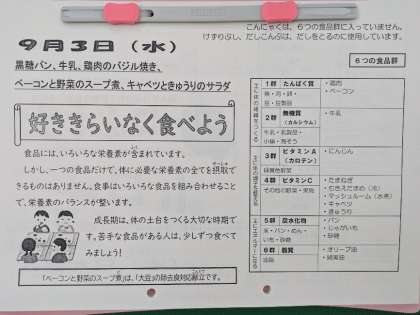 こんにゃくは、６つの食品群に入っていません。
けずりぶし、だしこんぶは、だしをとるのに使用しています。
９月３日（水）
黒糖パン、牛乳、鶏肉のバジル焼き、
ベーコンと野菜のスープ煮、キャベツときゅうりのサラダ
好ききらいなく食べよう
食品には、いろいろな栄養素が含まれています。
しかし、一つの食品だけで、体に必要な栄養素の全てを摂取で
きるものはありません。食事はいろいろな食品を組み合わせるこ
とで、栄養素のバランスが整います。
成長期は、体の土台をつくる大切な時期で
す。苦手な食品がある人は、少しずつ食べて
みましょう！
「ベーコンと野菜のスープ煮」は、「大豆」の除去食対応献立です。
６つの食品群
１群 たんぱく質
魚・肉・卵・
豆・豆製品
・鶏肉
・ベーコン
２群 無機質
（カルシウム）
牛乳・乳製品・
小魚・海そう
・牛乳
３群 ビタミンA
（カロテン）
緑黄色野菜
・にんじん
４群 ビタミンC
その他の野菜・果物
・たまねぎ
・マッシュルーム（水煮）
・キャベツ
・きゅうり
５群 炭水化物
米・パン・めん・
いも・砂糖
・パン
・じゃがいも
・砂糖
６群 脂質
油脂
・オリーブ油